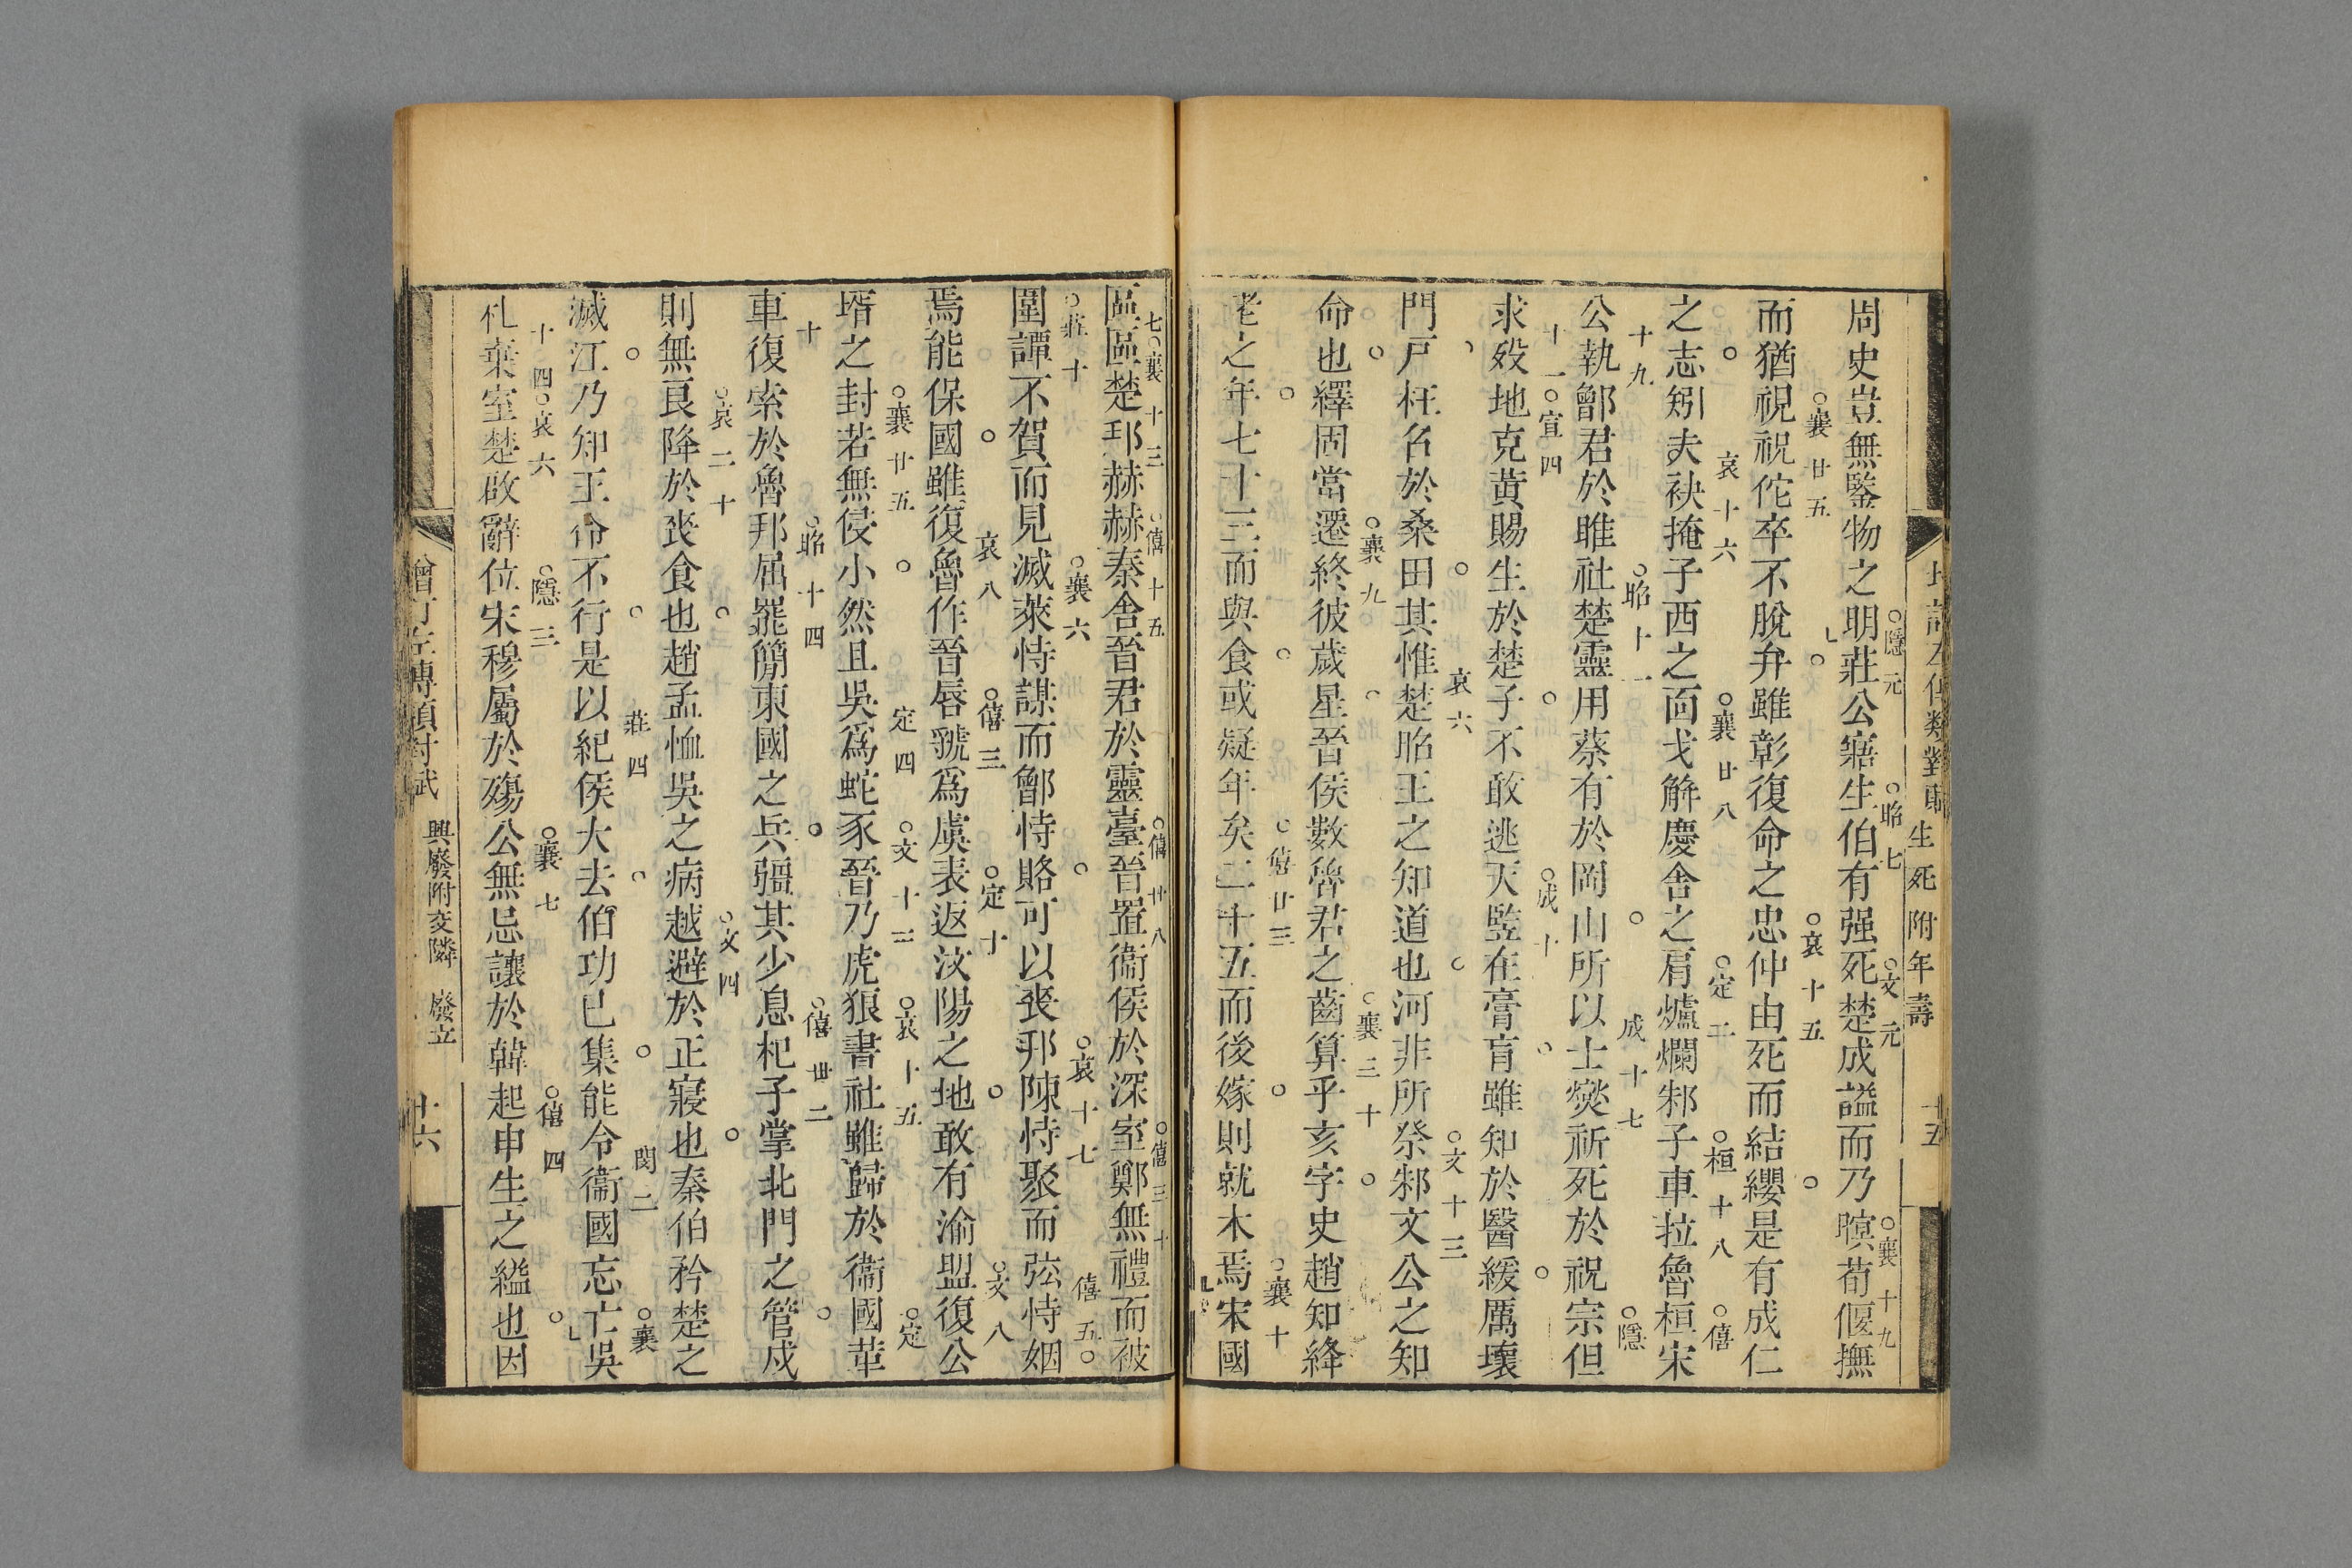 生死附年壽
十五
隱元 昭七 文元 襄十九
周史豈無鑒物之明莊公寤生伯有强死楚成謚而乃暝荀偃撫
襄廿五 哀十五
而猶視祝佗卒不脫弁雖彰復命之忠仲由死而結纓是有成仁
哀十六 襄廿八 定二 桓十八 僖
之志矧夫袂掩子西之面戈解慶舍之肩爐爛邾子車拉魯桓宋
十九 昭十一 成十七 隱
公執鄫君於睢社楚靈用蔡有於岡山所以士燮祈死於祝宗但
十一 宣四 成十
求歿地克黃賜生於楚子不敢逃天豎在膏肓雖知於醫緩厲壞
哀六 文十三
門戶枉名於桑田其惟楚昭王之知道也河非所祭邾文公之知
襄九 襄三十
命也繹固當遷終彼歲星晉侯數魯君之齒算乎亥字史趙知絳
僖廿三 襄十
老之年七十三而與食或疑年矣二十五而後嫁則就木焉宋國
七 襄十三 僖十五 僖廿八 僖三十
區區楚邦赫赫秦舍晉君於靈臺晉置衞侯於深室鄭無禮而被
莊十 襄六 哀十七 僖五
圍譚不賀而見滅萊恃謀而鄫恃賂可以喪邦陳恃聚而弦恃姻
哀八 僖三 定十 文八
焉能保國雖復魯作晉唇虢爲虞表返汶陽之地敢有渝盟復公
襄廿五 定四 文十三 哀十五 定
壻之封若無侵小然且吳爲蛇豕晉乃虎狼書社雖歸於衞國葷
十 昭十四 僖卅二
車復索於魯邦屈罷簡東國之兵彊其少息杞子掌北門之管戍
哀二十 文四
則無良降於喪食也趙孟恤吳之病越避於正寢也秦伯矜楚之
莊四 閔二 襄
滅江乃知王命不行是以紀侯大去伯功已集能令衞國忘亡吳
十四 哀六 隱三 襄七 僖四
札棄室楚啟辭位宋穆屬於殤公無忌讓於韓起申生之縊也因
興廢附交隣 廢立
十六